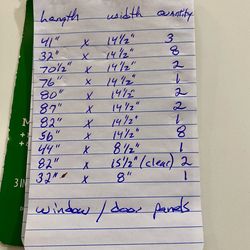 Length width quantity
41" x 14 1/2" 3
32" x 14 1/2" 8
70 1/2" x 14 1/2" 2
76" x 14 1/2" 1
80" x 14 1/2" 2
87" x 14 1/2" 2
82" x 14 1/2" 1
56" x 14 1/2" 8
44" x 8 1/2" 1
82" x 15 1/2" (clear) 2
32" x 8" 1
window / door panels
M
3 IN